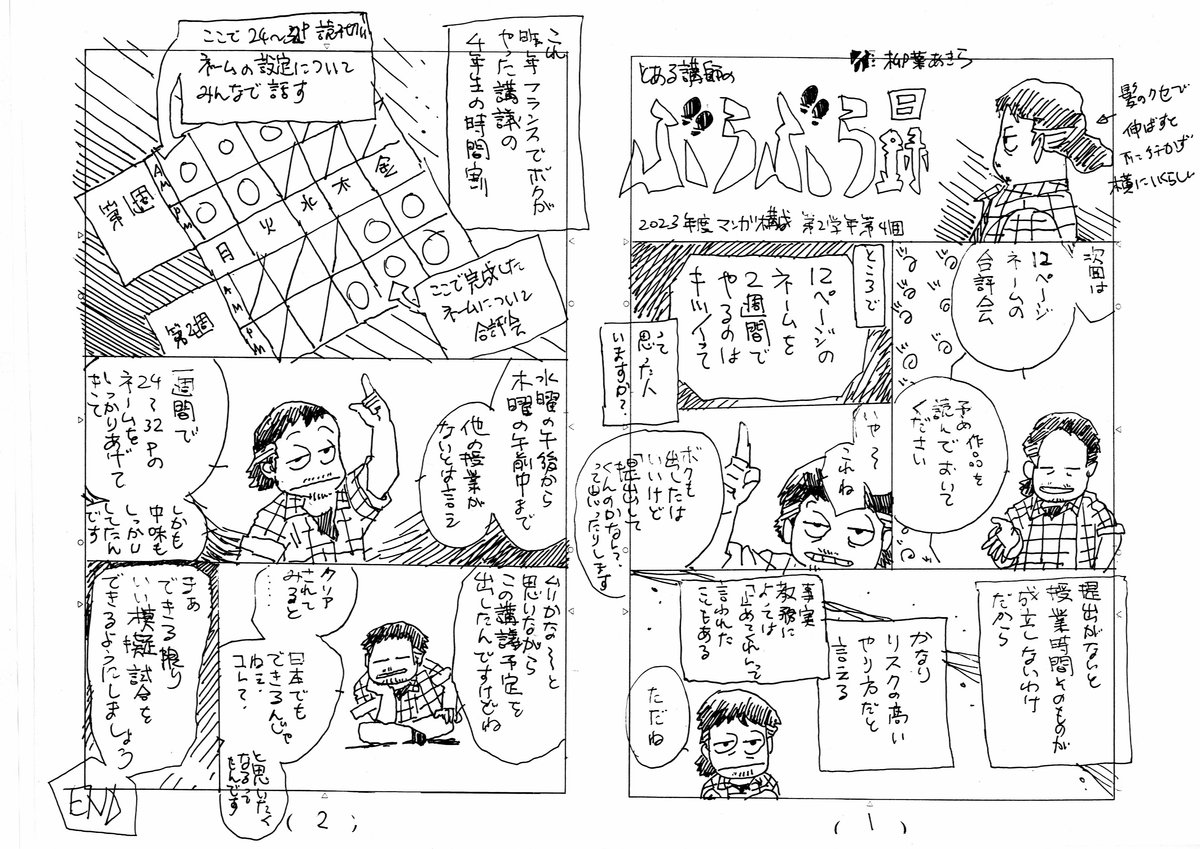 とある講師の
ぶらぶら日録
作:
あきら
2023年度 マンガ構成 第2学年第4回
髪のクセで
伸ばすと
下に行かず
横にいくらしい
次回は
12ページ
ネームの
合評会
予め作品を
読んでおいて
ください
ところで
12ページの
ネームを
2週間で
やるのは
キツイって
って
思った人
いますか?
いや〜
これね
ボクも
出したは
いいけど
「提出して
くんのかな〜?」
って思ったりします
提出がないと
授業時間そのものが
成立しないわけ
だから
かなり
リスクの高い
やり方だと
言える
事実
教務に
よっては
「止めてくれ」って
言われた
こともある
ただね
(1)
これ
昨年フランスでボクが
やった講議の
4年生の時間割
ここで24〜32P読み切り
ネームの設定について
みんなで話す
第一週
AM
PM
月
火
水
木
金
第2週
AM
PM
ここで完成した
ネームについて
合評会
水曜の午後から
木曜の午前中まで
他の授業が
ないとは言え
一週間で
24〜32Pの
ネームを
しっかりあげて
きて
しかも
中味も
しっかり
してたん
です
ムリかな〜と
思いながら
この講議予定を
出したんですけどね
クリア
されて
みると……
日本でも
できるんじゃ
ねェ、
コレ?
と思いたく
なるって
もんです
まぁ
できる限り
いい模擬試合を
できるようにしましょう
END
(2)